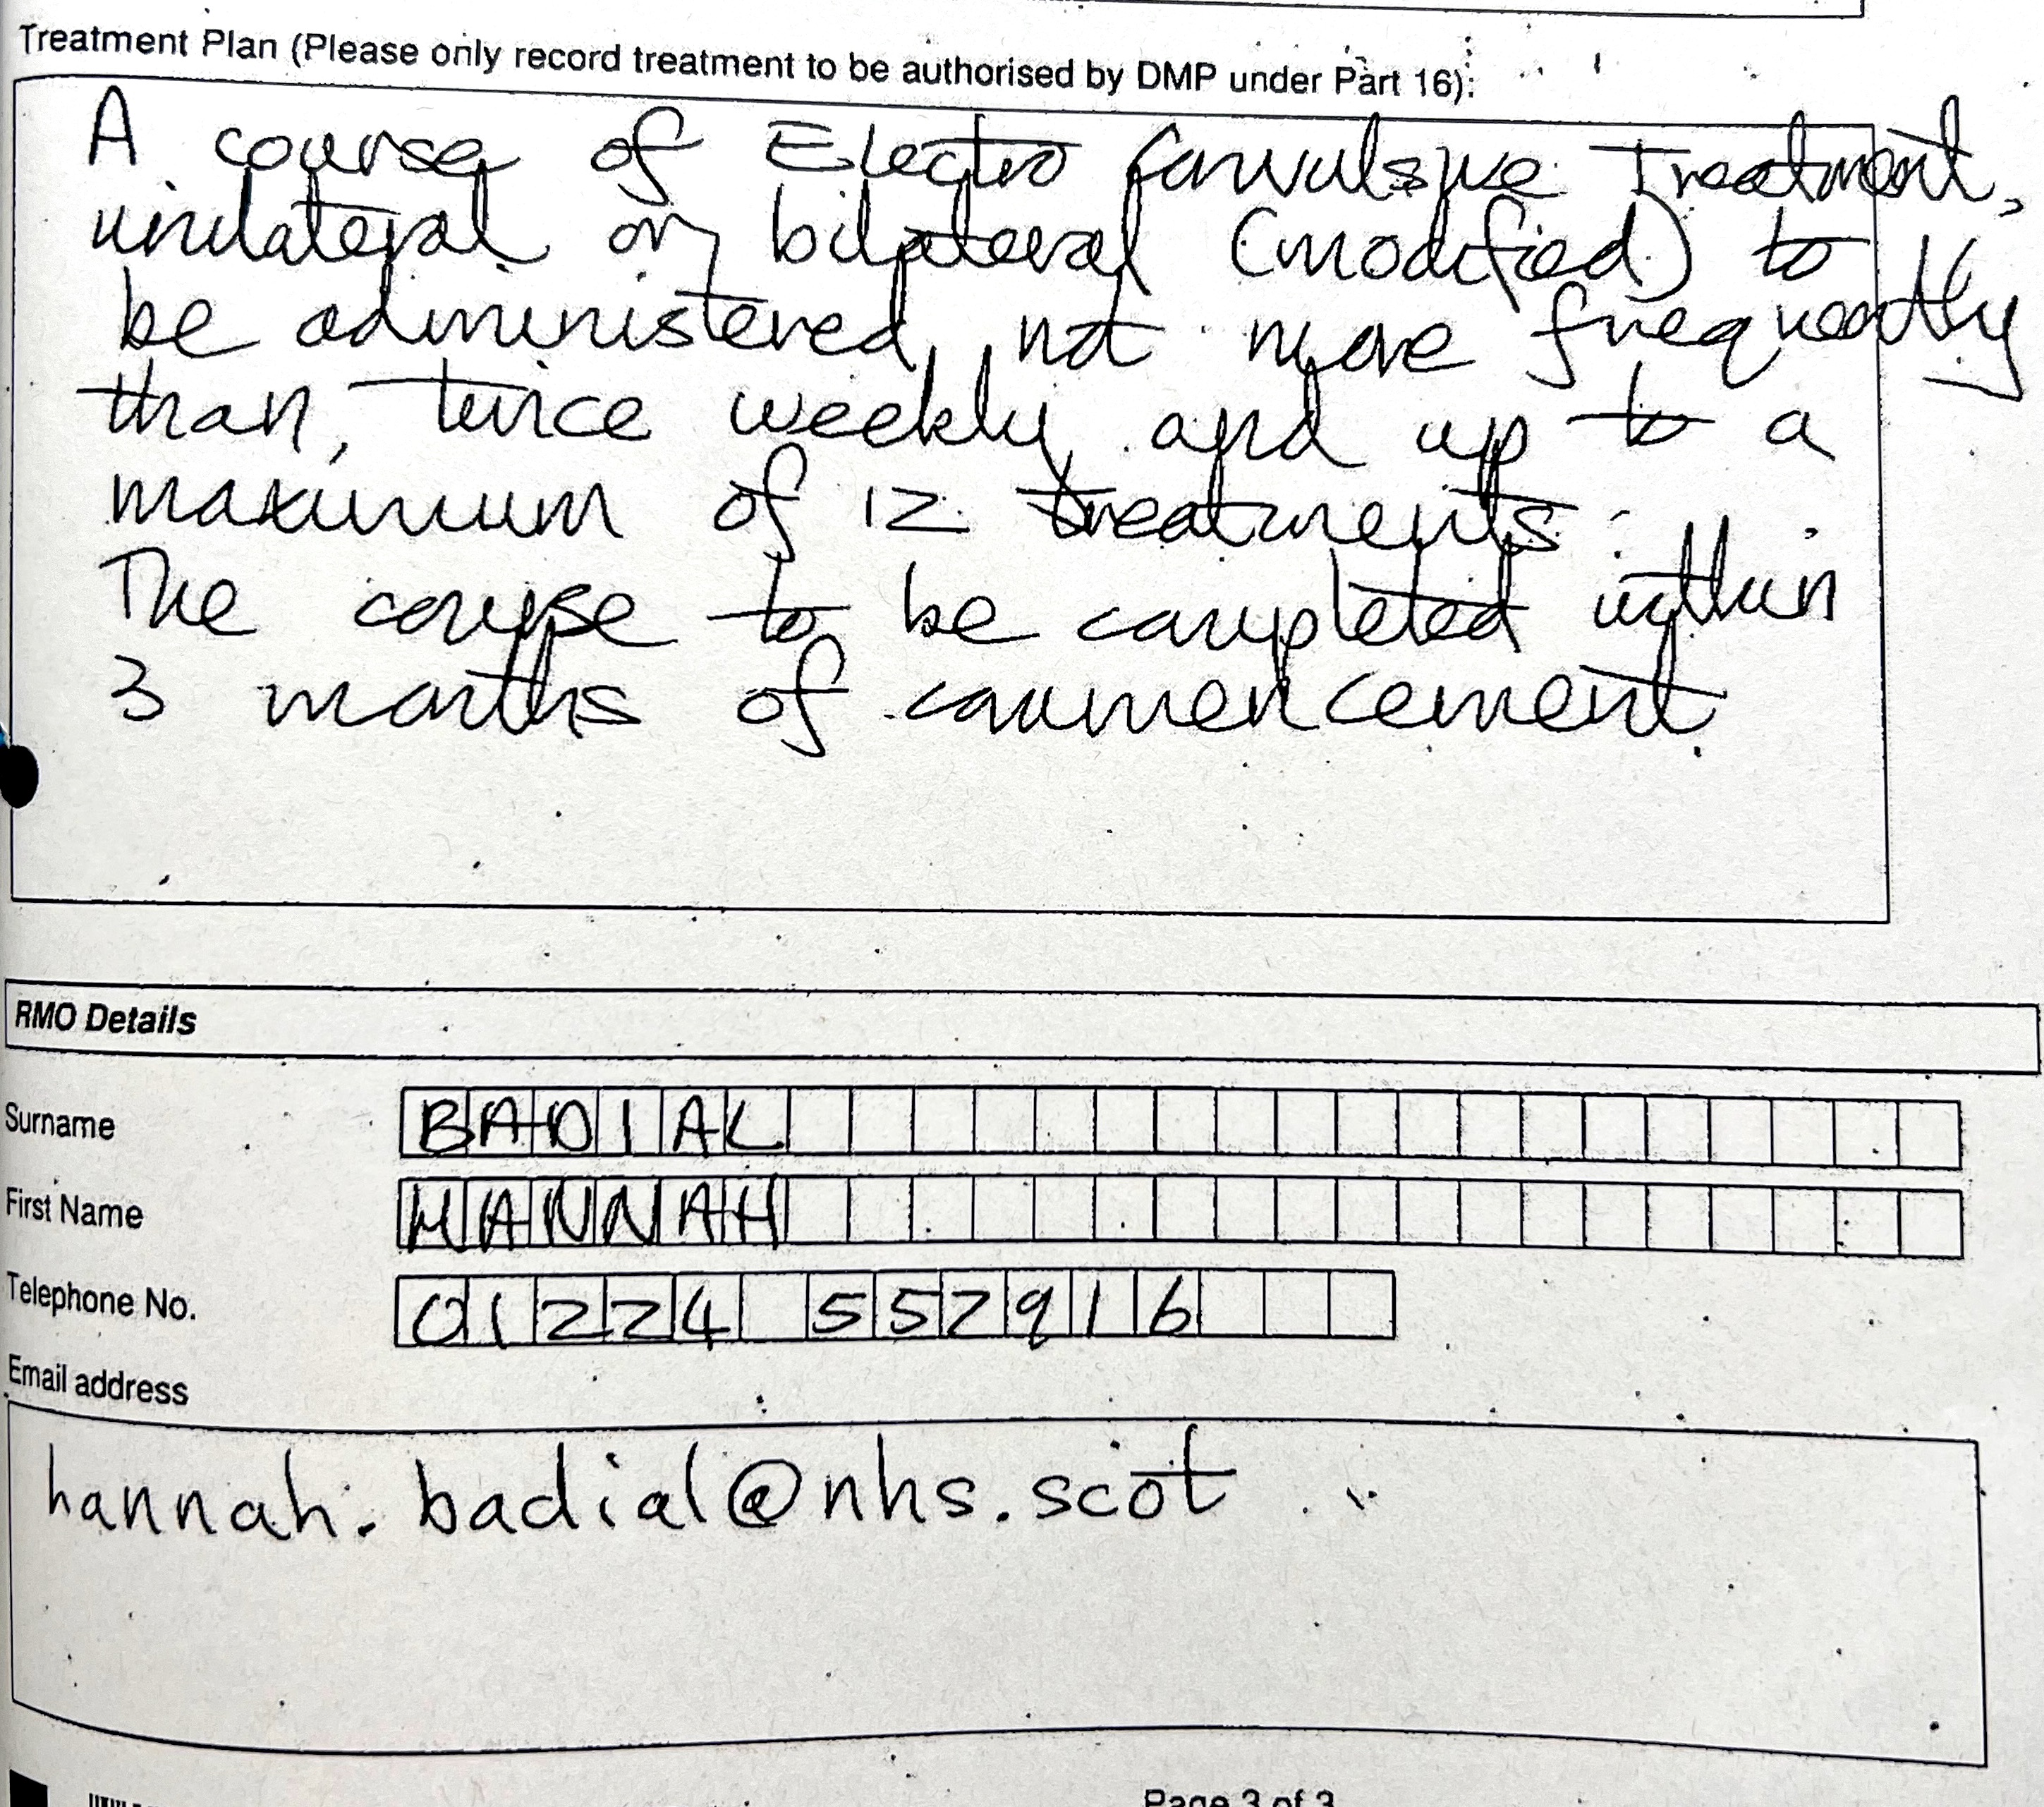 Treatment Plan (Please only record treatment to be authorised by DMP under Part 16):
A course of Electro Convulsive Treatment,
unilateral or bilateral (modified) to
be administered not more frequently
than twice weekly and up to a
maximum of 12 treatments.
The course to be completed within
3 months of commencement.
RMO Details
Surname BADIAL
First Name HANNAH
Telephone No. 01224 557916
Email address
hannah.badial@nhs.scot
Page 3 of 3